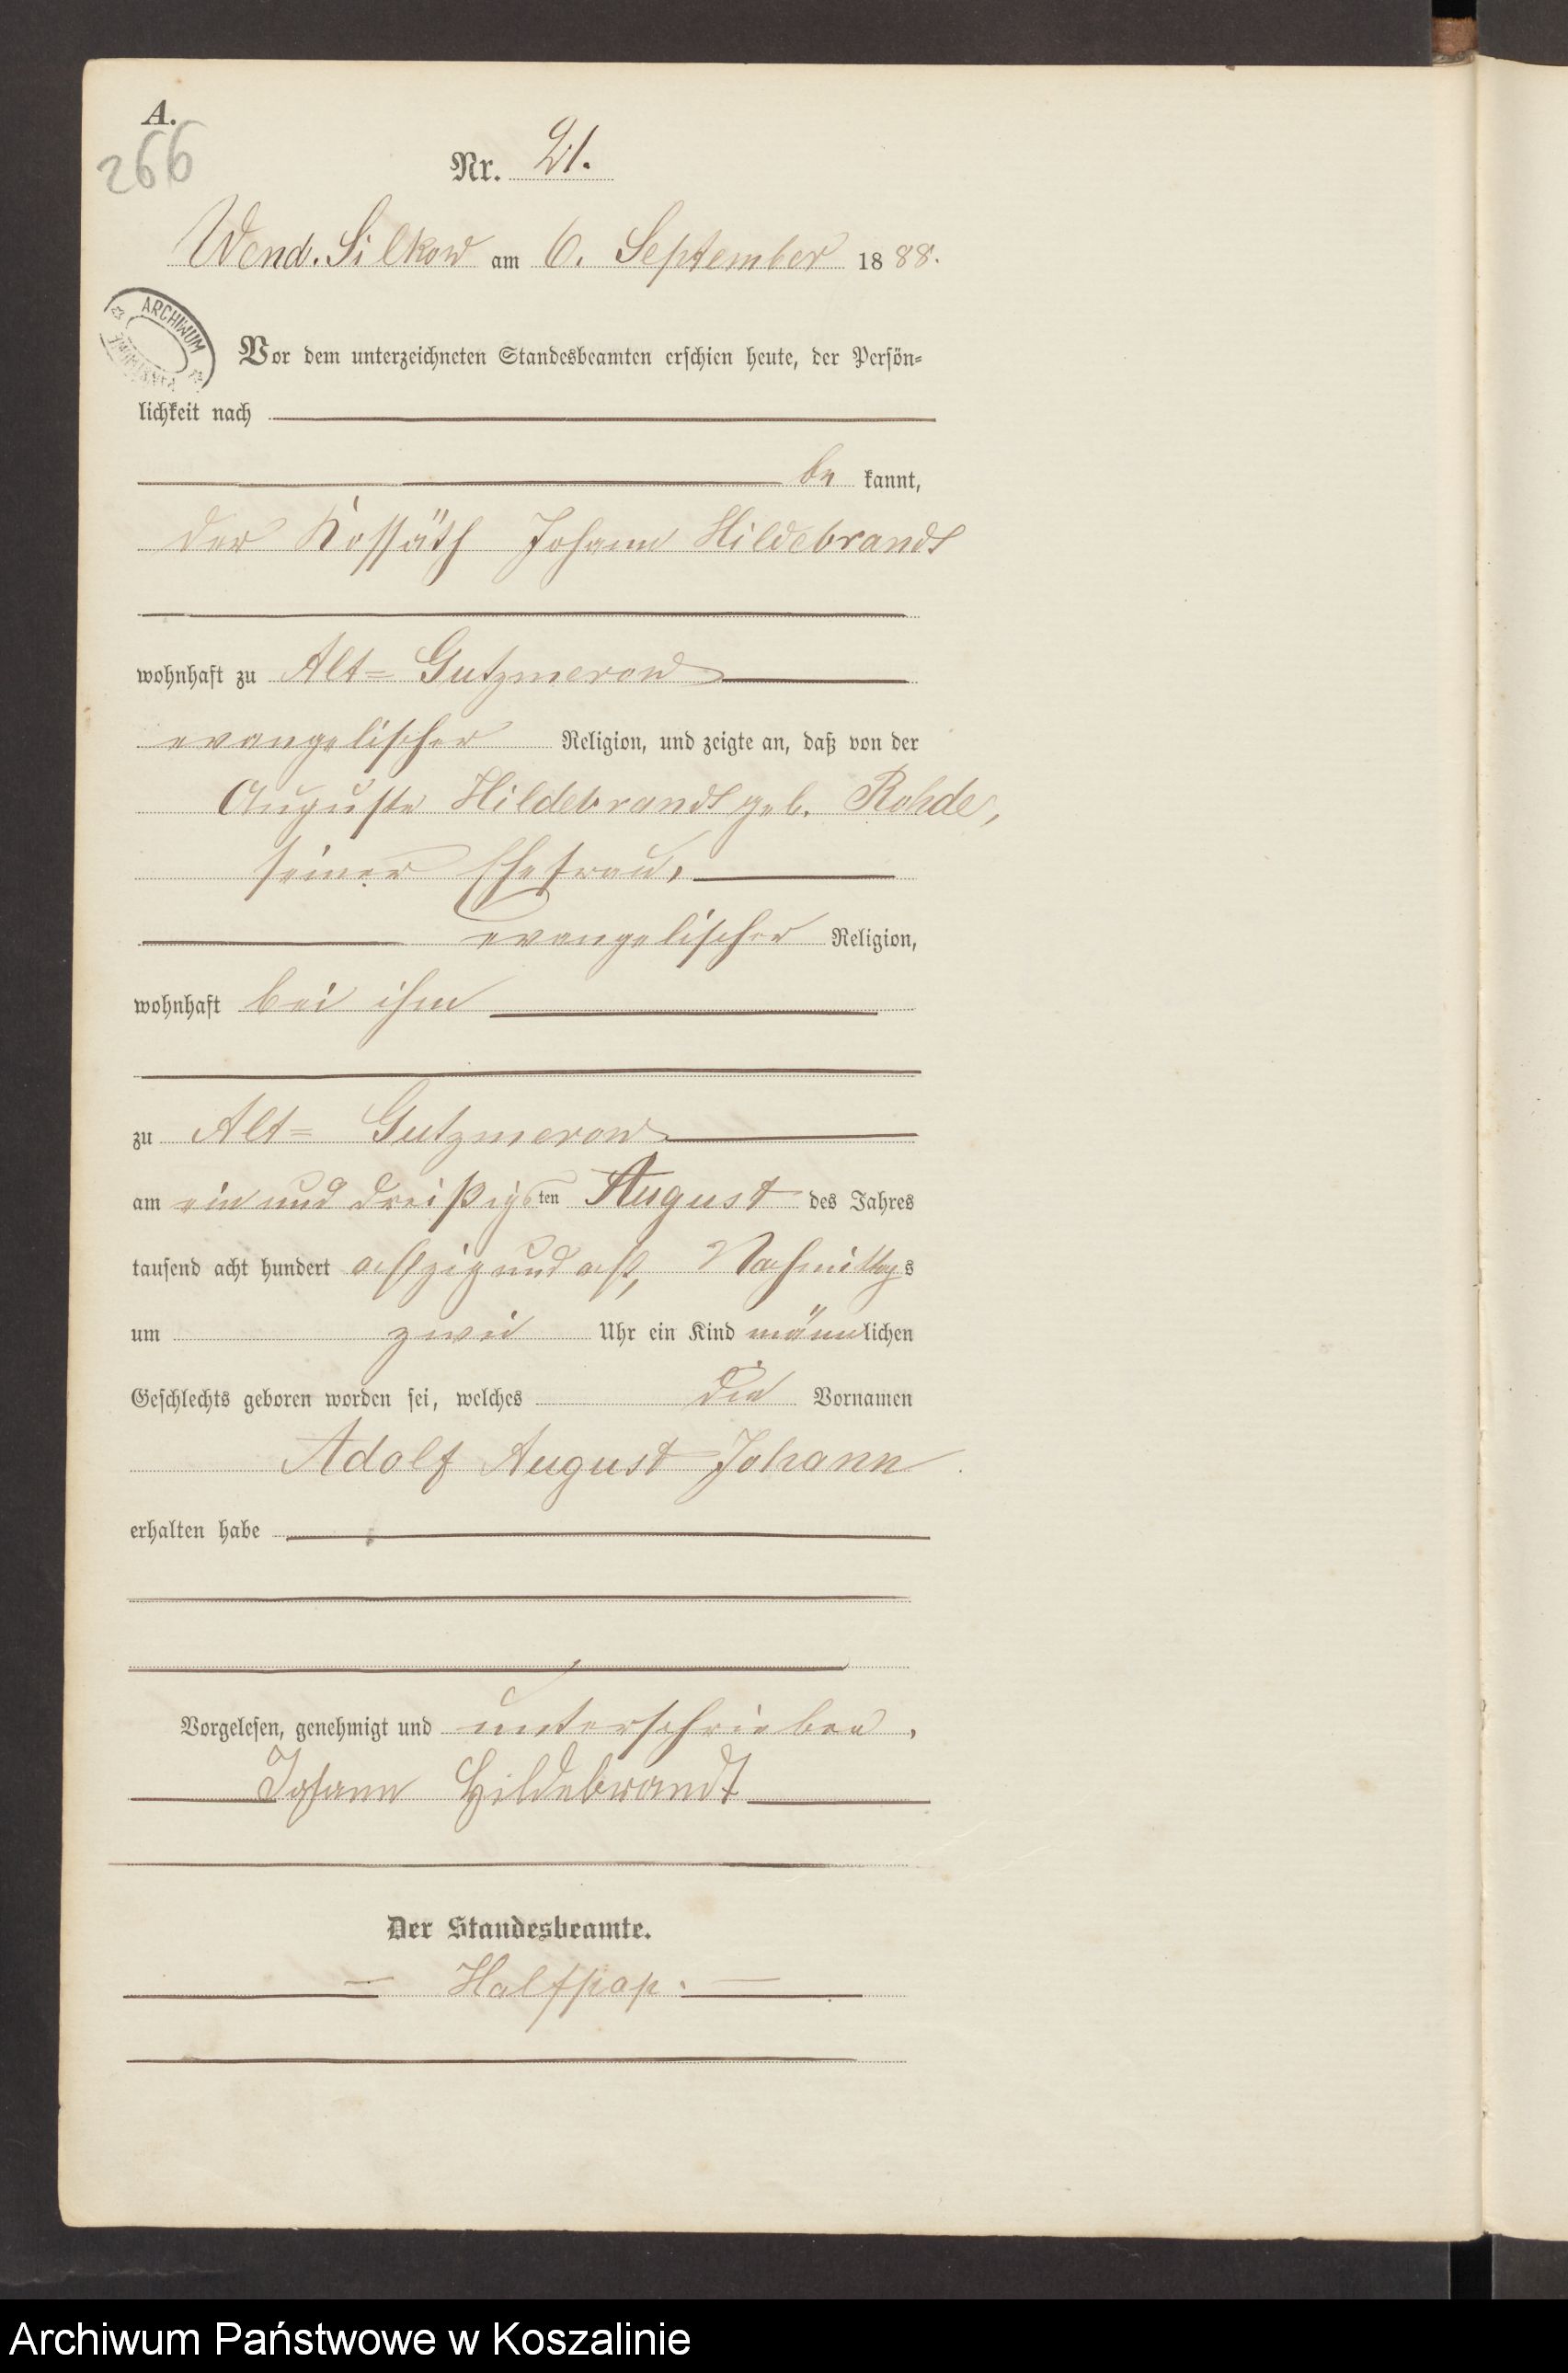 A.
266
Nr. 21.
Wend. Silkow am 6. September 1888.
ARCHIWUM
Vor dem unterzeichneten Standesbeamten erschien heute, der Persön-
lichkeit nach
be kannt,
der Kossäth Johann Hildebrandt
wohnhaft zu Alt= Gutzmerow
evangelischer Religion, und zeigte an, daß von der
Auguste Hildebrandt geb. Rohde,
seiner Ehefrau,
evangelischer Religion,
wohnhaft bei ihm
zu Alt= Gutzmerow
am ein und dreißigsten August des Jahres
tausend acht hundert achtzig und acht, Nachmittags
um zwei Uhr ein Kind männlichen
Geschlechts geboren worden sei, welches die Vornamen
Adolf August Johann
erhalten habe
Vorgelesen, genehmigt und unterschrieben.
Johann Hildebrandt
Der Standesbeamte.
Halfpap.
Archiwum Państwowe w Koszalinie